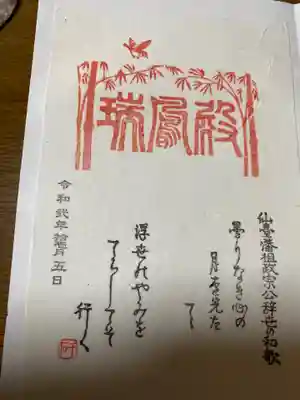 瑞鳳殿
仙臺藩祖政宗公辞世の和歌
曇りなき心の
月を先た
て
浮世のやみを
てらしてそ
行く
令和弐年拾壱月五日